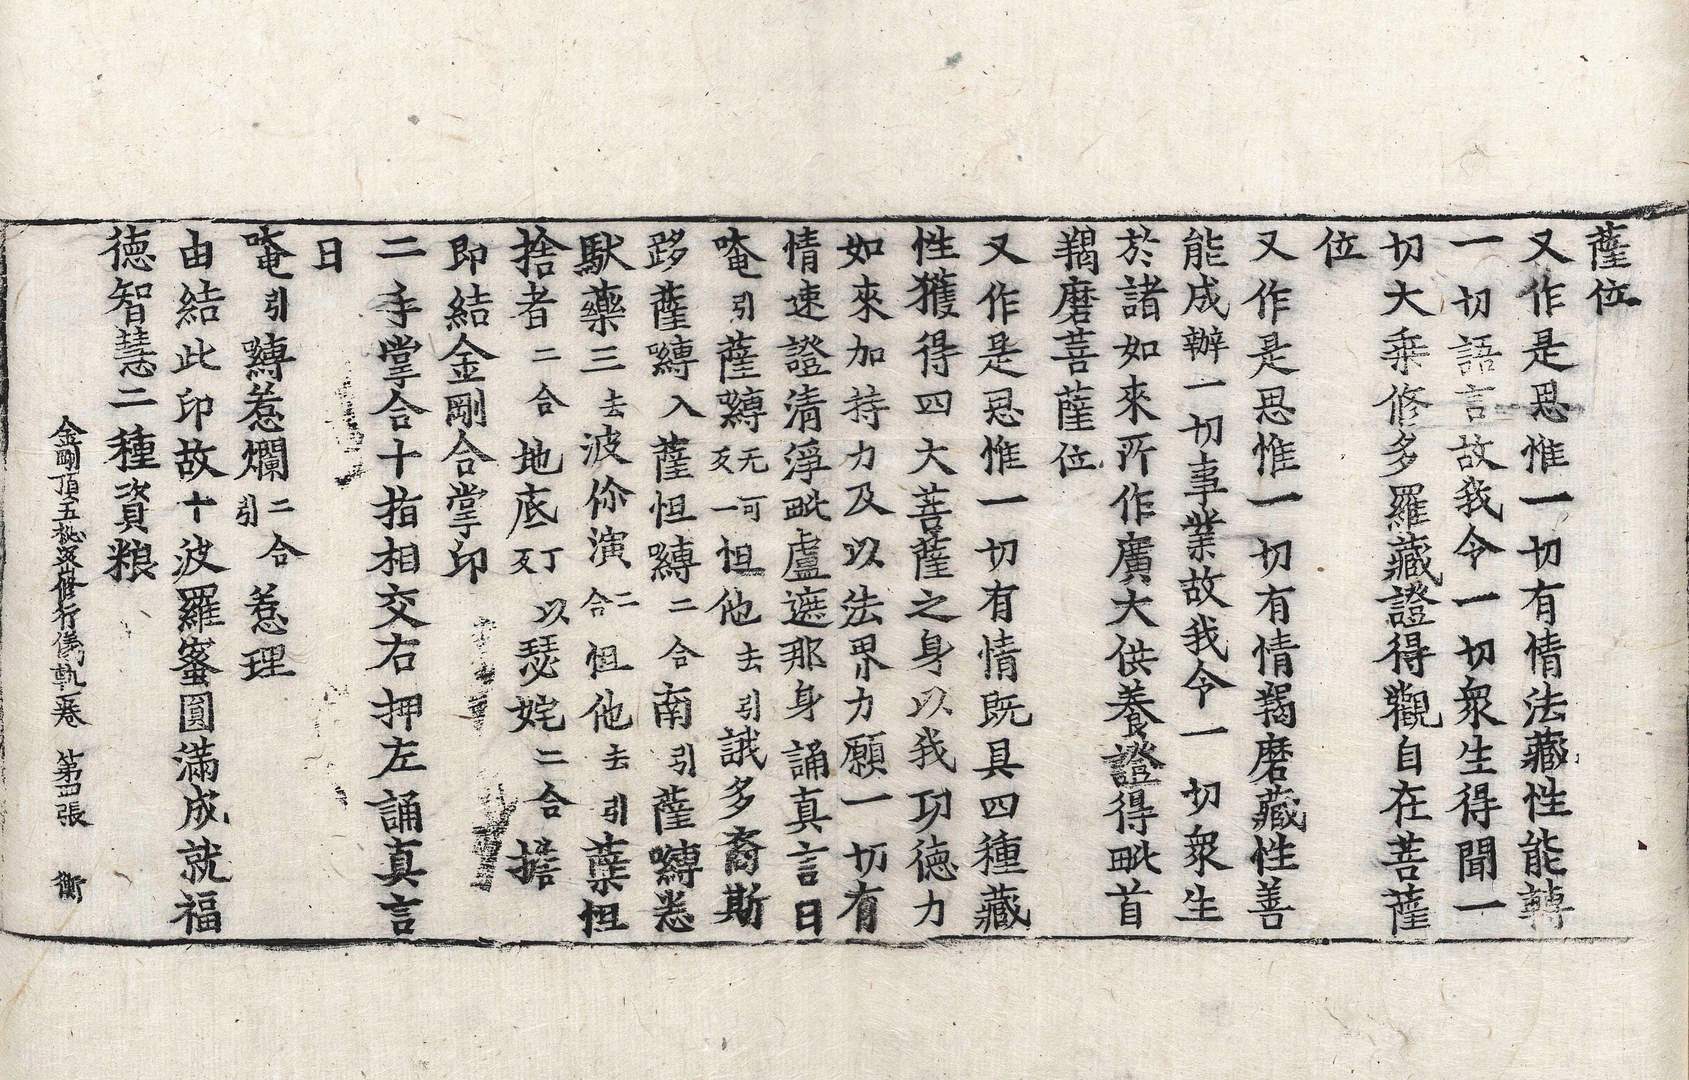 薩位
又作是思惟一切有情法藏性能轉
一切語言故我令一切衆生得聞一
切大乘修多羅藏證得觀自在菩薩
位
又作是思惟一切有情羯磨藏性善
能成辦一切事業故我令一切衆生
於諸如來所作廣大供養證得毗首
羯磨菩薩位
又作是思惟一切有情既具四種藏
性獲得四大菩薩之身以我功德力
如來加持力及以法界力願一切有
情速證清淨毗盧遮那身誦真言曰
唵引薩嚩无可反一怛他去引誐多裔斯
跢薩嚩入薩怛嚩二合南引薩嚩悉
馱藥三去波你演二合怛他去引葉怛
捨者二合地底丁以反瑟姹二合擔
即結金剛合掌印
二手掌合十指相交右押左誦真言
曰
唵引嚩惹爛二合引惹理
由結此印故十波羅蜜圓滿成就福
德智慧二種資粮
金剛頂五秘密修行儀軌一卷 第四張 衡